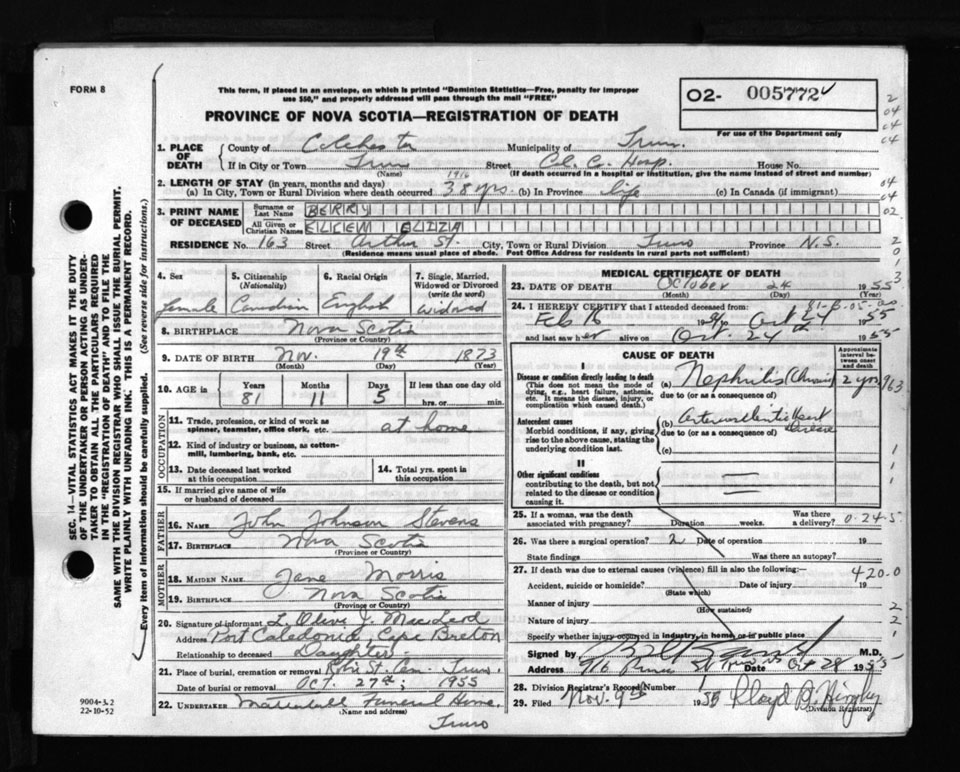 FORM 8
This form, if placed in an envelope, on which is printed "Dominion Statistics—Free, penalty for improper
use $50," and properly addressed will pass through the mail "FREE"
O2- 005772
For use of the Department only
PROVINCE OF NOVA SCOTIA—REGISTRATION OF DEATH
1. PLACE OF DEATH
County of Colchester Municipality of Truro.
If in City or Town Truro Street Cl. Co. Hosp. House No.
(Name) (If death occurred in a hospital or institution, give the name instead of street and number)
1916
2. LENGTH OF STAY (in years, months and days)
(a) In City, Town or Rural Division where death occurred 38 yrs. (b) In Province life (c) In Canada (if immigrant)
3. PRINT NAME OF DECEASED
Surname or Last Name BERRY
All Given or Christian Names ELLEN ELIZA
RESIDENCE No. 163 Street Arthur St. City, Town or Rural Division Truro Province N.S.
(Residence means usual place of abode. Post Office Address for residents in rural parts not sufficient)
4. Sex
female
5. Citizenship (Nationality)
Canadian
6. Racial Origin
English
7. Single, Married, Widowed or Divorced (write the word)
Widowed
8. BIRTHPLACE Nova Scotia
(Province or Country)
9. DATE OF BIRTH Nov. 19th 1873
(Month) (Day) (Year)
10. AGE in
Years Months Days If less than one day old
81 11 5 hrs. or min.
OCCUPATION
11. Trade, profession, or kind of work as
spinner, teamster, office clerk, etc. at home
12. Kind of industry or business, as cotton-
mill, lumbering, bank, etc.
13. Date deceased last worked
at this occupation
14. Total yrs. spent in
this occupation
15. If married give name of wife
or husband of deceased
FATHER
16. NAME John Johnson Stevens
17. BIRTHPLACE Nova Scotia
(Province or Country)
MOTHER
18. MAIDEN NAME Jane Morris
19. BIRTHPLACE Nova Scotia
(Province or Country)
20. Signature of informant L. Olive J. MacLeod
Address Port Caledonia, Cape Breton
Relationship to deceased Daughter
21. Place of burial, cremation or removal Robie St. Cem. Truro.
Date of burial or removal Oct. 27th; 1955
22. UNDERTAKER Funeral Home,
(Name and address)
Truro
MEDICAL CERTIFICATE OF DEATH
23. DATE OF DEATH October 24 1955
(Month) (Day) (Year)
24. I HEREBY CERTIFY that I attended deceased from:
Feb 16 to Oct 24 1955
and last saw her alive on Oct. 24th 1955
CAUSE OF DEATH
Approximate interval between onset and death
I
Disease or condition directly leading to death
(This does not mean the mode of
dying, e.g., heart failure, asthenia,
etc. It means the disease, injury, or
complication which caused death.)
(a) Nephritis (Chronic) 2 yrs.
due to (or as a consequence of)
Antecedent causes
Morbid conditions, if any, giving
rise to the above cause, stating the
underlying condition last.
(b) Arteriosclerotic Heart Disease
due to (or as a consequence of)
(c)
II
Other significant conditions
contributing to the death, but not
related to the disease or condition
causing it.
25. If a woman, was the death
associated with pregnancy? Duration weeks. Was there a delivery? 0-24-5
26. Was there a surgical operation? 2 Date of operation 19
State findings Was there an autopsy?
27. If death was due to external causes (violence) fill in also the following:— 420-0
Accident, suicide or homicide? Date of injury 19
(State which)
Manner of injury
(How sustained)
Nature of injury
Specify whether injury occurred in industry, in home, or in public place
Signed by M.D.
Address 916 Prince St Truro Date Oct 28 1955
28. Division Registrar's Record Number
29. Filed Nov. 9th 1955 Lloyd
(Division Registrar)
SEC. 14—VITAL STATISTICS ACT MAKES IT THE DUTY
OF THE UNDERTAKER OR PERSON ACTING AS UNDER-
TAKER TO OBTAIN ALL THE PARTICULARS REQUIRED
IN THE "REGISTRATION OF DEATH" AND TO FILE THE
SAME WITH THE DIVISION REGISTRAR WHO SHALL ISSUE THE BURIAL PERMIT.
WRITE PLAINLY WITH UNFADING INK. THIS IS A PERMANENT RECORD.
Every item of information should be carefully supplied. (See reverse side for instructions.)
9004-3.2
22-10-52